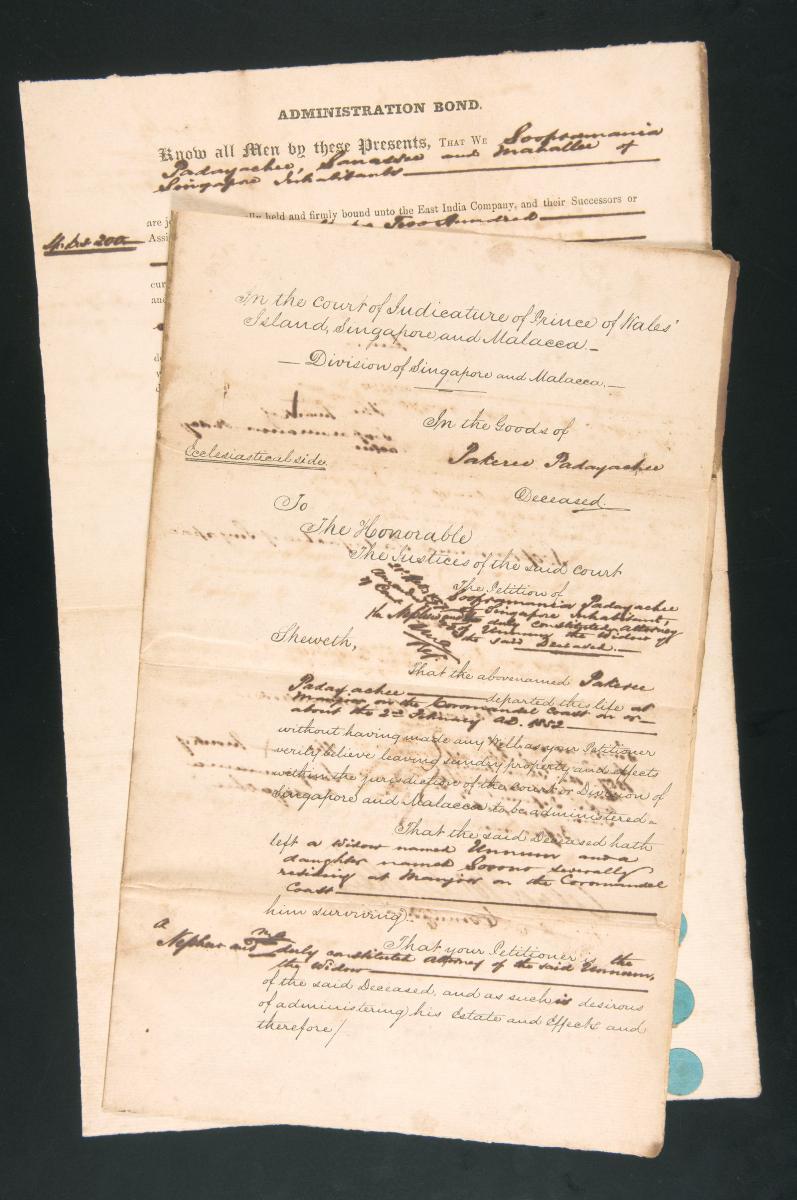 ADMINISTRATION BOND.
Know all Men by these Presents, THAT WE Soopramania
Padayachee, Sanassee and Mahallee of
Singapore Inhabitants
held and firmly bound unto the East India Company, and their Successors or
Two Hundred
200
In the court of Judicature of Prince of Wales'
Island, Singapore and Malacca.—
— Division of Singapore and Malacca.—
In the Goods of
Ecclesiastical side.
Pakeree Padayachee
Deceased.
To
The Honorable
The Justices of the said court
The Petition of
Soopramania Padayachee
Singapore inhabitant,
the Nephew and duly constituted Attorney
of Unnum the Widow of
the said Deceased.—
Sheweth,
That the abovenamed Pakeree
Padayachee departed this life at
on the Coromandel Coast on or
about the 2nd February A.D. 1852
without having made any Will as your Petitioner
verily believe leaving sundry property and effects
within the jurisdiction of the court or Division of
Singapore and Malacca to be administered.
That the said Deceased hath
left a widow named Unnum and a
daughter named severally
residing at on the Coromandel
Coast
him surviving.
That your Petitioner is the
a
Nephew and duly constituted Attorney of the said Unnum,
the Widow
of the said Deceased, and as such is desirous
of administering his Estate and Effects and
therefore/